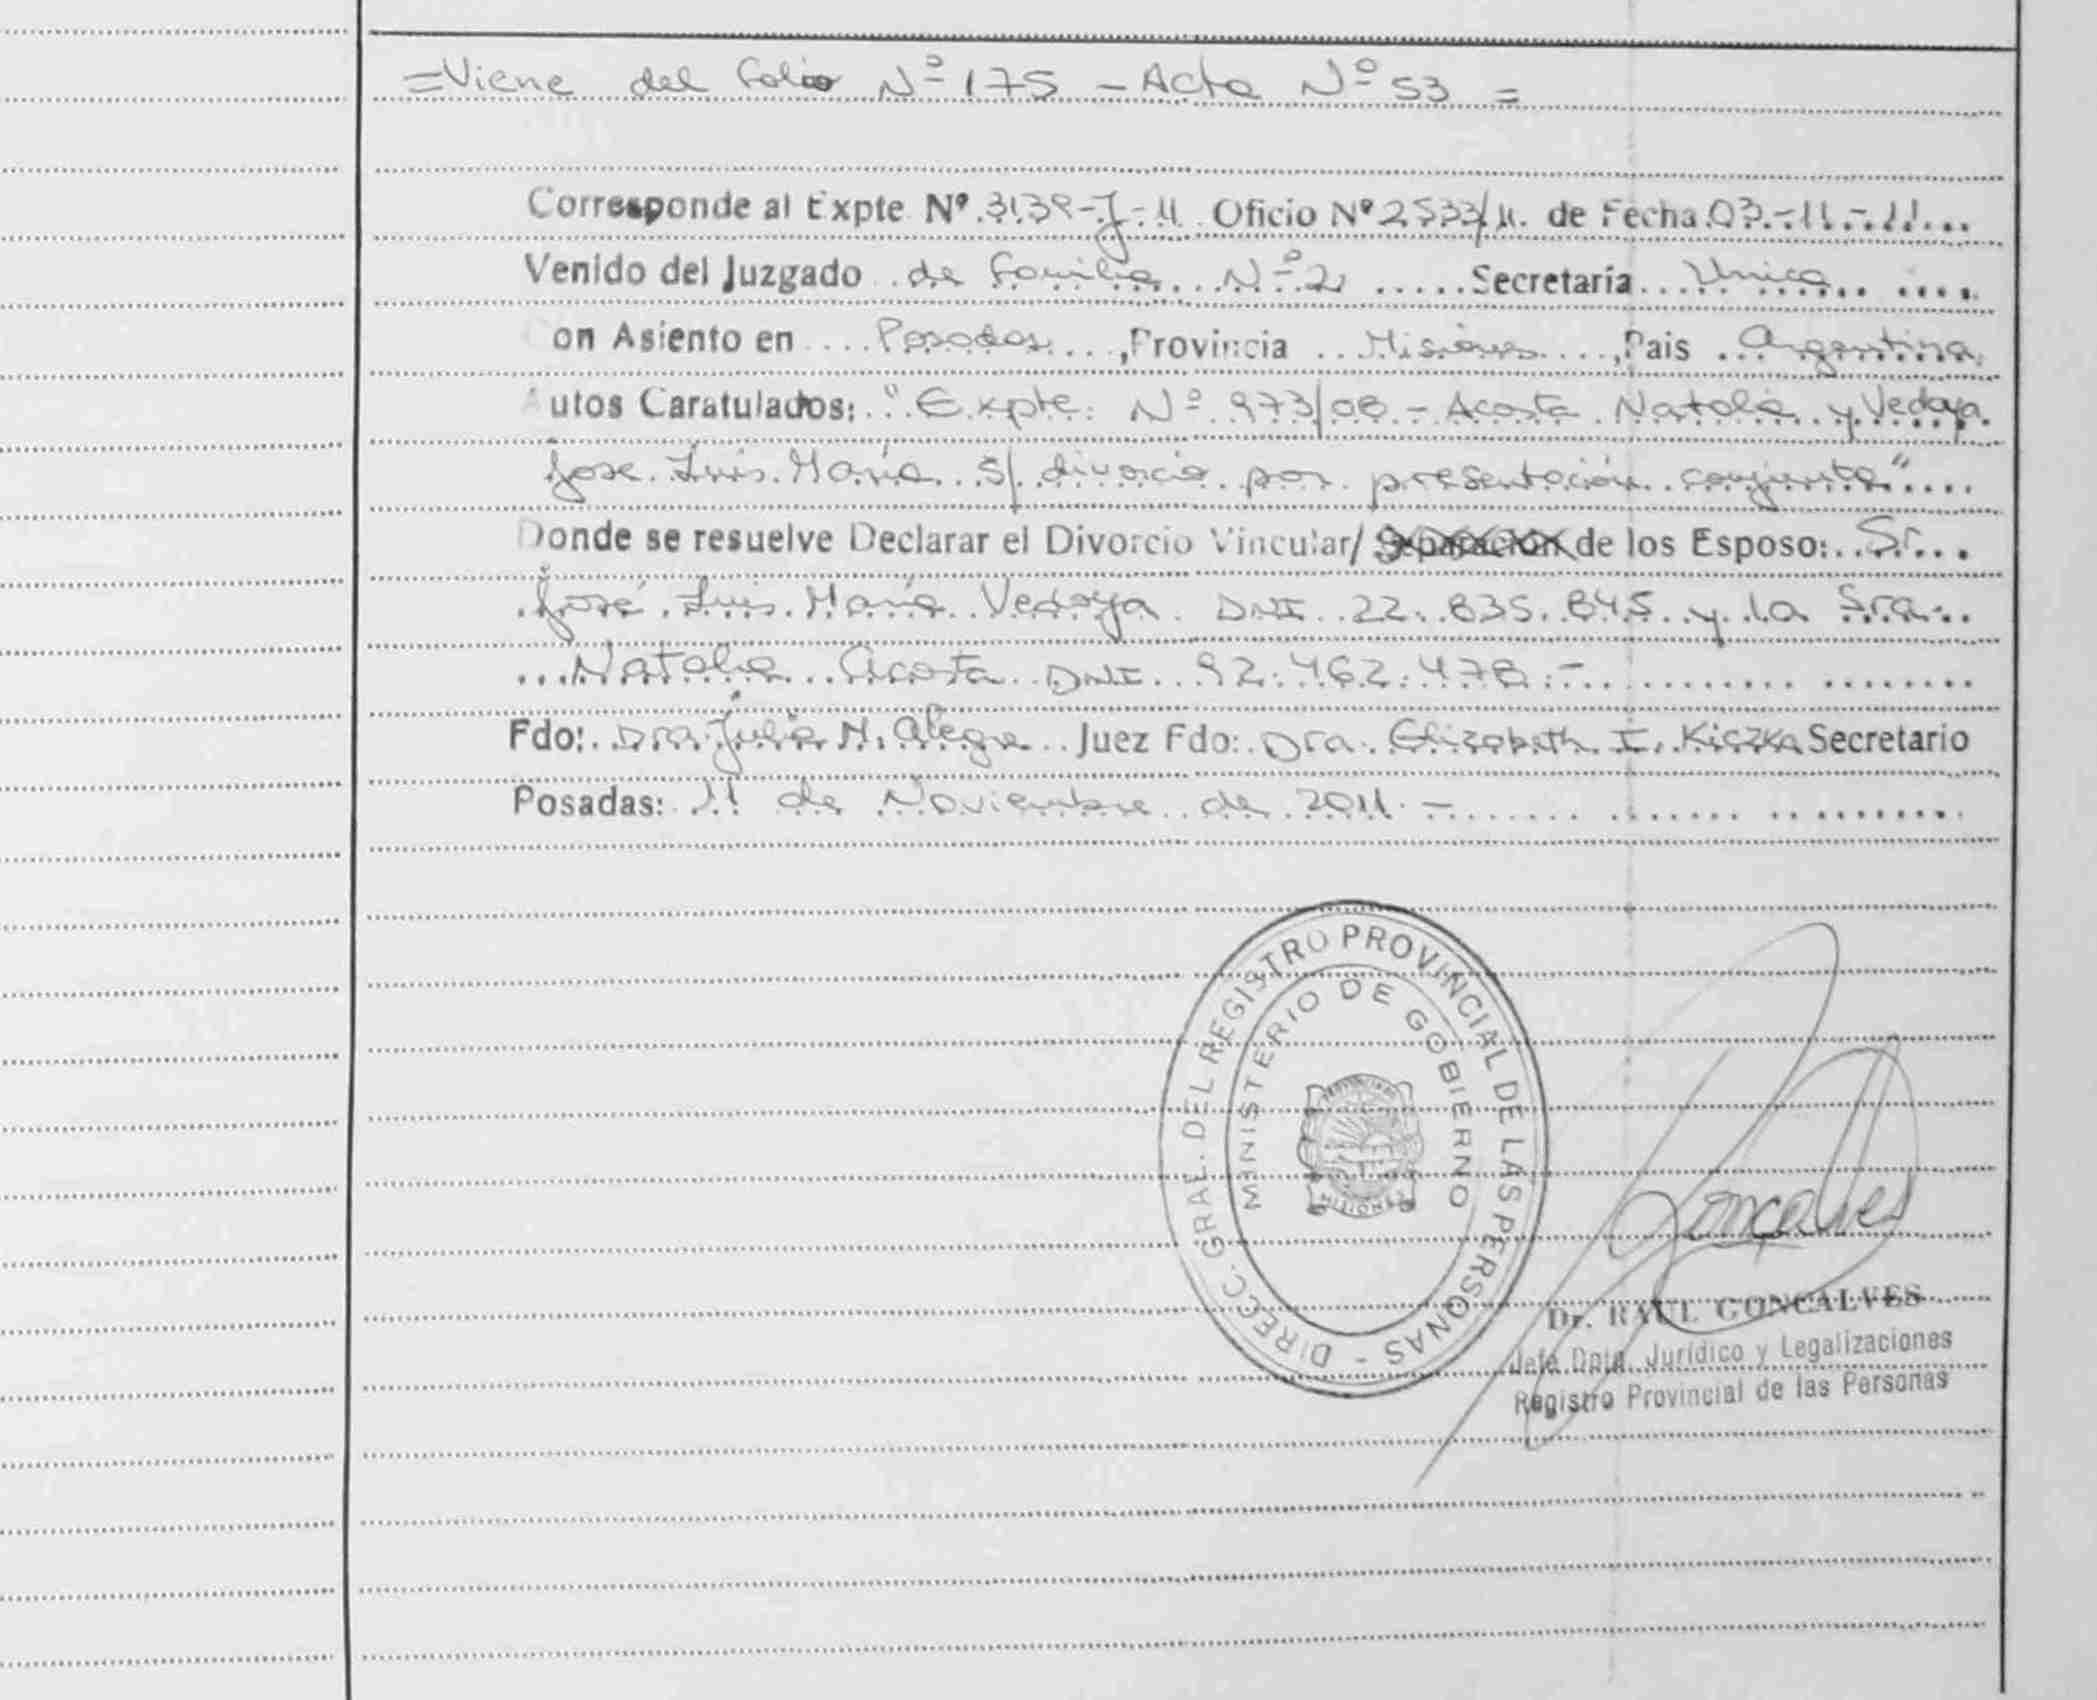 =Viene del folio Nº 175 - Acta Nº 53 =
Corresponde al Expte Nº 3139-J-11 Oficio Nº 2533/11. de Fecha 03-11-11
Venido del Juzgado de familia Nº 2 Secretaría Unica
on Asiento en Posadas, Provincia Misiones, Pais Argentina
Autos Caratulados: "Expte. Nº 973/08 - Acosta Natalia y Vedoya
Jose Luis María s/ divorcio por presentación conjunta"
Donde se resuelve Declarar el Divorcio Vincular/ Separación de los Esposo: Sr.
José Luis María Vedoya DNI 22.835.845 y la Sra.
Natalia Acosta DNI 92.462.478.-
Fdo: Dra Julia N. Alegre Juez Fdo: Dra. Elizabeth I. Kiczka Secretario
Posadas: 11 de Noviembre de 2011.-
DIRECC. GRAL. DEL REGISTRO PROVINCIAL DE LAS PERSONAS -
MINISTERIO DE GOBIERNO
MISIONES
Goncalves
Dr. RAUL GONCALVES
Jefe Dpto. Jurídico y Legalizaciones
Registro Provincial de las Personas